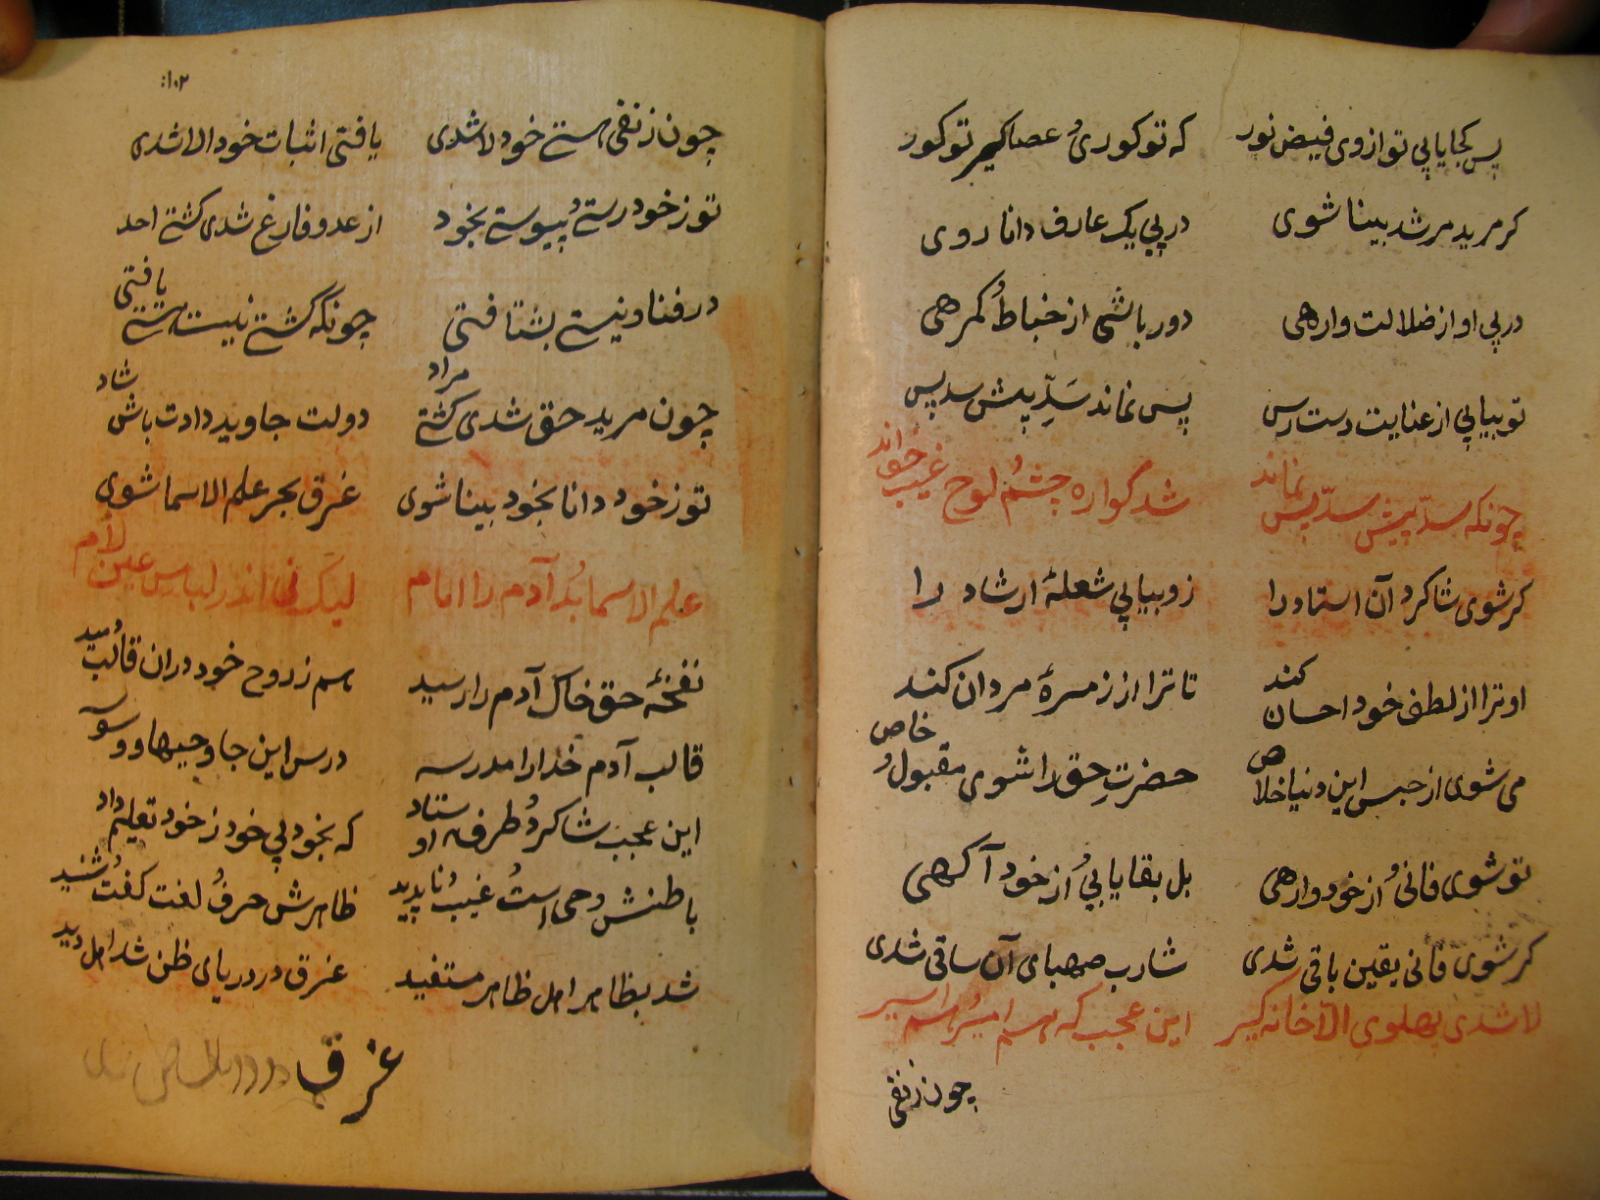 پس کجا یابی تو از وی فیض نور که تو کوری و عصا کیر تو کور
کر مرید مرشد بینا شوی در پی یک عارف دانا روی
در پی او از ضلالت وارهی دور باشی از خباط کمرهی
تو بیابی از عنایت دست رس پس نماند سدِّ پیش سد پس
چونکه سدّ پیش سدّ پس نماند شد کواره چشم لوح غیب خواند
کر شوی شاکرد آن استاد را زو بیابی شعلهٔ ارشاد را
او ترا از لطف خود احسان کند تا ترا از زمرهٔ مردان کند
می شوی از حبس این دنیا خلاص حضرتِ حق را شوی مقبول و خاص
تو شوی فانی و از خود وارهی بل بقا یابی و از خود آکهی
کر شوی فانی یقین باقی شدی شارب صهبای آن ساقی شدی
لا شدی پهلوی الّا خانه کیر این عجب که هم امیر و هم اسیر
چون ز نفی
۱۰۲
چون ز نفی هستی خود لا شدی یافتی اثبات خود الا شدی
تو ز خود رستی و پیوستی بخود از عدو فارغ شدی کشتی احد
در فنا و نیستی بشتافتی چونکه کشتی نیست هستی یافتی
چون مرید حق شدی کشتی مراد دولت جاوید دادت باش شاد
تو ز خود دانا بخود بینا شوی غرق بحر علم الاسما شوی
علم الاسما بُد آدم را امام لیک نی اندر لباس عین و لام
نفخهٔ حق خاک آدم را رسید هم ز روح خود دران قالب دمید
قالب آدم خدا را مدرسه درس این جا وحیها و وسوسه
این عجب شاکرد و طرفه اوستاد که بخود پی خود ز خود تعلیم داد
باطنش وحی است و غیب و ناپدید ظاهرش حرف و لغت کفت و شنید
شد بظاهر اهل ظاهر مستفید غرق در دریای ظن شد اهل دید
غرق